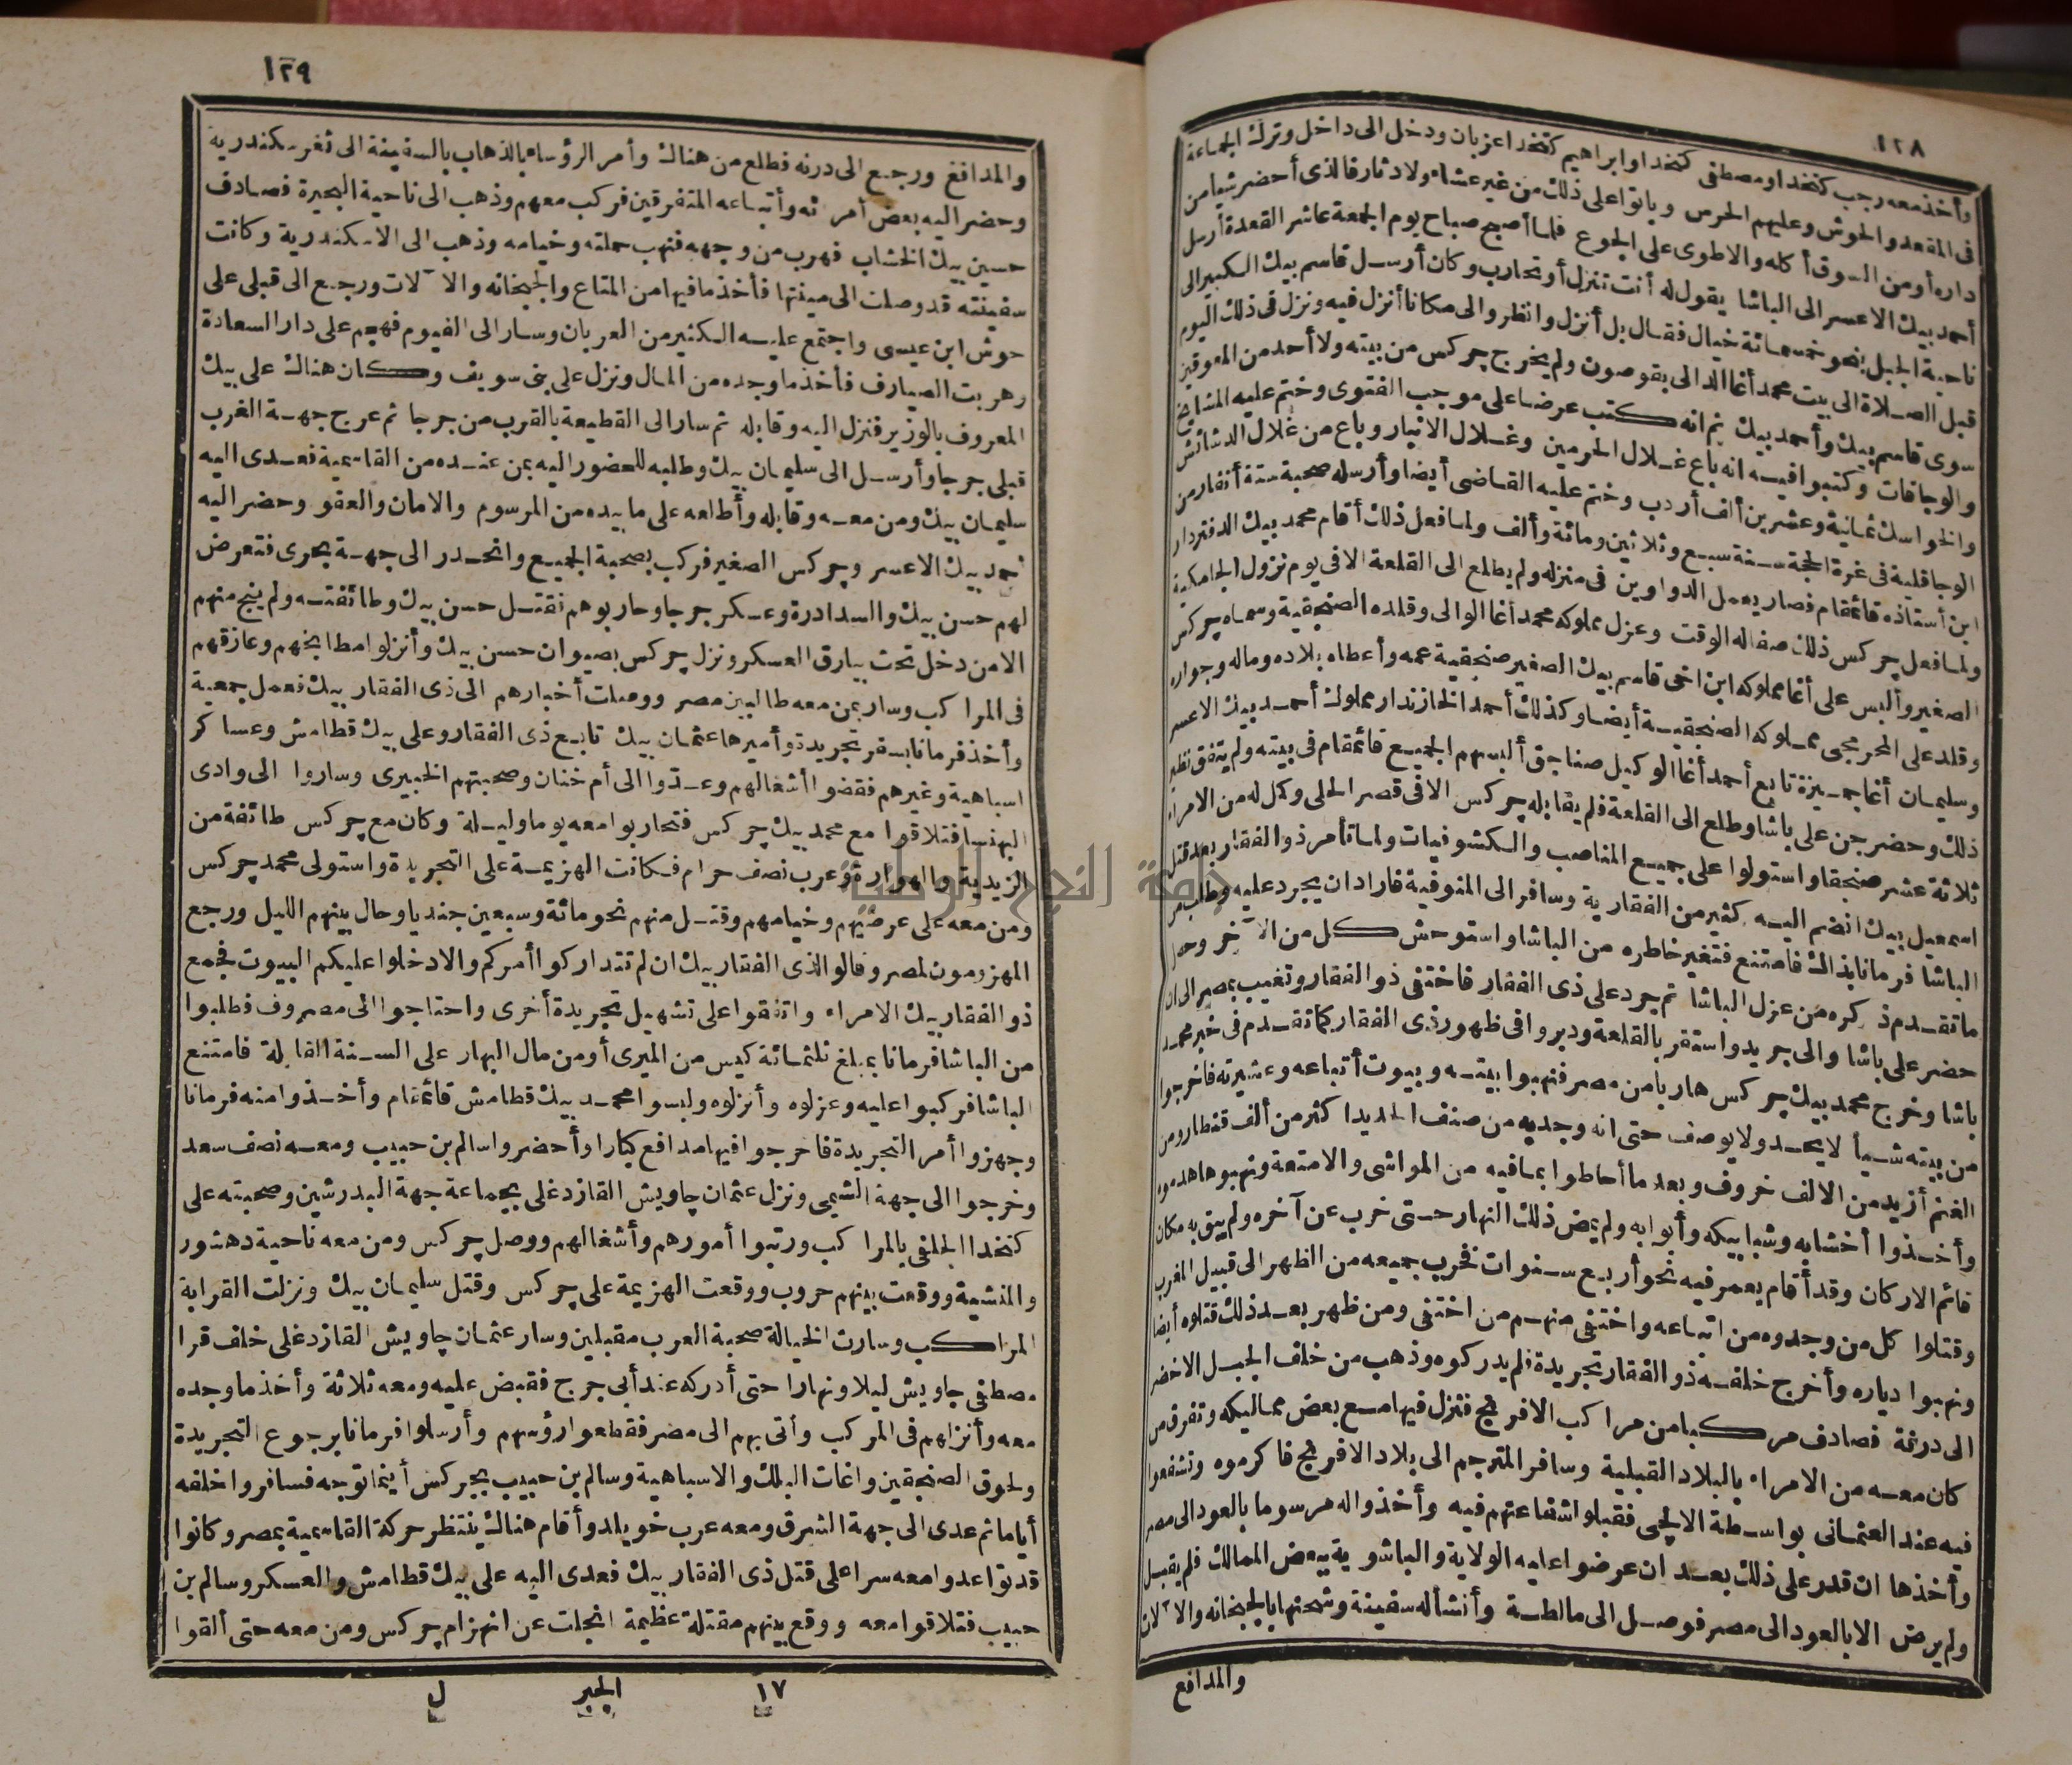 ١٢٨
وأخذ معه رجب كتخدا ومصطفى كتخدا وابراهيم كتخدا عزبان ودخل الى داخل وترك الجماعة
فى المقعد والحوش وعليهم الحرس وباتوا على ذلك من غير عشاء ولا دثار فالذى أحضر شيأ من
داره أو من السوق أكله والا طوى على الجوع فلما أصبح صباح يوم الجمعة عاشر القعدة أرسل
أحمد بيك الاعسر الى الباشا يقول له أنت تنزل أو تحارب وكان أرسل قاسم بيك الكبير الى
ناحية الجبل بنحو خمسمائة خيال فقال بل أنزل وانظروا لى مكانا أنزل فيه ونزل فى ذلك اليوم
قبل الصلاة الى بيت محمد أغا الدالى بقوصون ولم يخرج چركس من بيته ولا أحد من المعوقين
سوى قاسم بيك وأحمد بيك ثم انه كتب عرضا على موجب الفتوى وختم عليه المشايخ
والوجاقات وكتبوا فيه انه باع غلال الحرمين وغلال الانبار وباع من غلال الدشائش
والخواسك ثمانية وعشرين ألف أردب وختم عليه القاضى أيضا وأرسله صحبة ستة أنفار من
الوجاقلية فى غرة الحجة سنة سبع وثلاثين ومائة وألف ولما فعل ذلك أقام محمد بيك الدفتردار
ابن أستاذه قائمقام فصار يعمل الدواوين فى منزله ولم يطلع الى القلعة الا فى يوم نزول الجامكية
ولما فعل چركس ذلك صفا له الوقت وعزل مملوكه محمد أغا الوالى وقلده الصنجقية وسماه چركس
الصغير وألبس على أغا مملوكه ابن اخى قاسم بيك الصغير صنجقية عمه وأعطاه بلاده وماله وجواره
وقلد على المحرمجى مملوكه الصنجقية أيضا وكذلك أحمد الخازندار مملوك أحمد بيك الاعسر
وسليمان أغا جميزة تابع أحمد أغا الوكيل صناجق ألبسهم الجميع قائمقام فى بيته ولم يتفق نظير
ذلك وحضر جن على باشا وطلع الى القلعة فلم يقابله چركس الا فى قصر الحلى وكمل له من الامراء
ثلاثة عشر صنجقا واستولوا على جميع المناصب والكشوفيات ولما تأمر ذو الفقار بعد قتل
اسمعيل بيك انضم اليه كثير من الفقارية وسافر الى المنوفية فاراد ان يجرد عليه وطلب من
الباشا فرمانا بذلك فامتنع فتغير خاطره من الباشا واستوحش كل من الآخر وحصل
ما تقدم ذكره من عزل الباشا ثم جرد على ذى الفقار فاختفى ذو الفقار وتغيب بمصر الى ان
حضر على باشا والى جريد واستقر بالقلعة ودبروا فى ظهور ذى الفقار كما تقدم فى خبر محمد
باشا وخرج محمد بيك چركس هاربا من مصر فنهبوا بيته وبيوت أتباعه وعشيرته فاخرجوا
من بيته شيأ لا يحد ولا يوصف حتى انه وجد به من صنف الحديد اكثر من ألف قنطار ومن
الغنم أزيد من الالف خروف وبعد ما أحاطوا بما فيه من المواشى والامتعة ونهبوها هدموه
وأخذوا أخشابه وشبابيكه وأبوابه ولم يمض ذلك النهار حتى خرب عن آخره ولم يبق به مكان
قائم الاركان وقد أقام يعمر فيه نحو أربع سنوات فخرب جميعه من الظهر الى قبيل المغرب
وقتلوا كل من وجدوه من اتباعه واختفى منهم من اختفى ومن ظهر بعد ذلك قتلوه أيضا
ونهبوا دياره وأخرج خلفه ذو الفقار تجريدة فلم يدركوه وذهب من خلف الجبل الاخضر
الى درنة فصادف مركبا من مراكب الافرنج فنزل فيها مع بعض مماليكه وتفرق من
كان معه من الامراء بالبلاد القبلية وسافر المترجم الى بلاد الافرنج فاكرموه وتشفعوا
فيه عند العثمانى بواسطة الالچى فقبلوا شفاعتهم فيه وأخذوا له مرسوما بالعود الى مصر
وأخذها ان قدر على ذلك بعد ان عرضوا عليه الولاية والباشوية ببعض الممالك فلم يقبل
ولم يرض الا بالعود الى مصر فوصل الى مالطة وأنشأ له سفينة وشحنها بالجبخانه والآلات
والمدافع
١٢٩
والمدافع ورجع الى درنه فطلع من هناك وأمر الرؤساء بالذهاب بالسفينة الى ثغر سكندرية
وحضر اليه بعض أمرائه وأتباعه المتفرقين فركب معهم وذهب الى ناحية البحيرة فصادف
حسين بيك الخشاب فهرب من وجهه فنهب حملته وخيامه وذهب الى الاسكندرية وكانت
سفينته قد وصلت الى مينتها فأخذ ما فيها من المتاع والجبخانه والآلات ورجع الى قبلى على
حوش ابن عيسى واجتمع عليه الكثير من العربان وسار الى الفيوم فهجم على دار السعادة
وهربت الصيارف فأخذ ما وجده من المال ونزل على بنى سويف وكان هناك على بيك
المعروف بالوزير فنزل اليه وقابله ثم سار الى القطيعة بالقرب من جرجا ثم عرج جهة الغرب
قبلى جرجا وأرسل الى سليمان بيك وطلبه للحضور اليه بمن عنده من القاسمية فعدى اليه
سليمان بيك ومن معه وقابله وأطلعه على ما بيده من المرسوم والامان والعفو وحضر اليه
أحمد بيك الاعسر وچركس الصغير فركب بصحبة الجميع وانحدر الى جهة بحرى فتعرض
لهم حسن بيك والسدادرة وعسكر جرجا وحاربوهم فقتل حسن بيك وطائفته ولم ينج منهم
الا من دخل تحت بيارق العسكر ونزل چركس بصيوان حسن بيك وأنزلوا مطابخهم وعازقهم
فى المراكب وسار بمن معه طالبين مصر ووصلت أخبارهم الى ذى الفقار بيك فعمل جمعية
وأخذ فرمانا بسفر تجريدة وأميرها عثمان بيك تابع ذى الفقار وعلى بيك قطامش وعساكر
اسباهية وغيرهم فقضوا أشغالهم وعدوا الى أم خنان وصحبتهم الخبيرى وساروا الى وادى
البهنسا فتلاقوا مع محمد بيك چركس فتحاربوا معه يوما وليلة وكان مع چركس طائفة من
الزيدية والهوارة وعرب نصف حرام فكانت الهزيمة على التجريدة واستولى محمد چركس
ومن معه على عرضيهم وخيامهم وقتل منهم نحو مائة وسبعين جنديا وحال بينهم الليل ورجع
المهزومون لمصر وقالوا لذى الفقار بيك ان لم تتداركوا أمركم والا دخلوا عليكم البيوت فجمع
ذو الفقار بيك الامراء واتفقوا على تشهيل تجريدة أخرى واحتاجوا الى مصروف فطلبوا
من الباشا فرمانا بمبلغ ثلثمائة كيس من الميرى أو من مال البهار على السنة القابلة فامتنع
الباشا فركبوا عليه وعزلوه وأنزلوه ولبسوا محمد بيك قطامش قائمقام وأخذوا منه فرمانا
وجهزوا أمر التجريدة فاخرجوا فيها مدافع كبارا وأحضروا سالم بن حبيب ومعه نصف سعد
وخرجوا الى جهة الشيمى ونزل عثمان چاويش القازدغلى بجماعة جهة البدرشين وصحبته على
كتخدا الجلفى بالمراكب ورتبوا أمورهم وأشغالهم ووصل چركس ومن معه ناحية دهشور
والمنشية ووقعت بينهم حروب ووقعت الهزيمة على چركس وقتل سليمان بيك ونزلت القرابة
المراكب وسارت الخيالة صحبة العرب مقبلين وسار عثمان چاويش القازدغلى خلف قرا
مصطفى چاويش ليلا ونهارا حتى أدركه عند أبى جرج فقبض عليه ومعه ثلاثة وأخذ ما وجده
معه وأنزلهم فى المركب وأتى بهم الى مصر فقطعوا رؤسهم وأرسلوا فرمانا برجوع التجريدة
ولحوق الصنجقين واغات البلك والاسباهية وسالم بن حبيب بچركس أينما توجه فسافروا خلفه
أياما ثم عدى الى جهة الشرق ومعه عرب خويلد وأقام هناك ينتظر حركة القاسمية بمصر وكانوا
قد تواعدوا معه سرا على قتل ذى الفقار بيك فعدى اليه على بيك قطامش والعسكر وسالم بن
حبيب فتلاقوا معه ووقع بينهم مقتلة عظيمة انجلت عن انهزام چركس ومن معه حتى ألقوا
١٧ الجبر ل
جامعة النجاح الوطنية